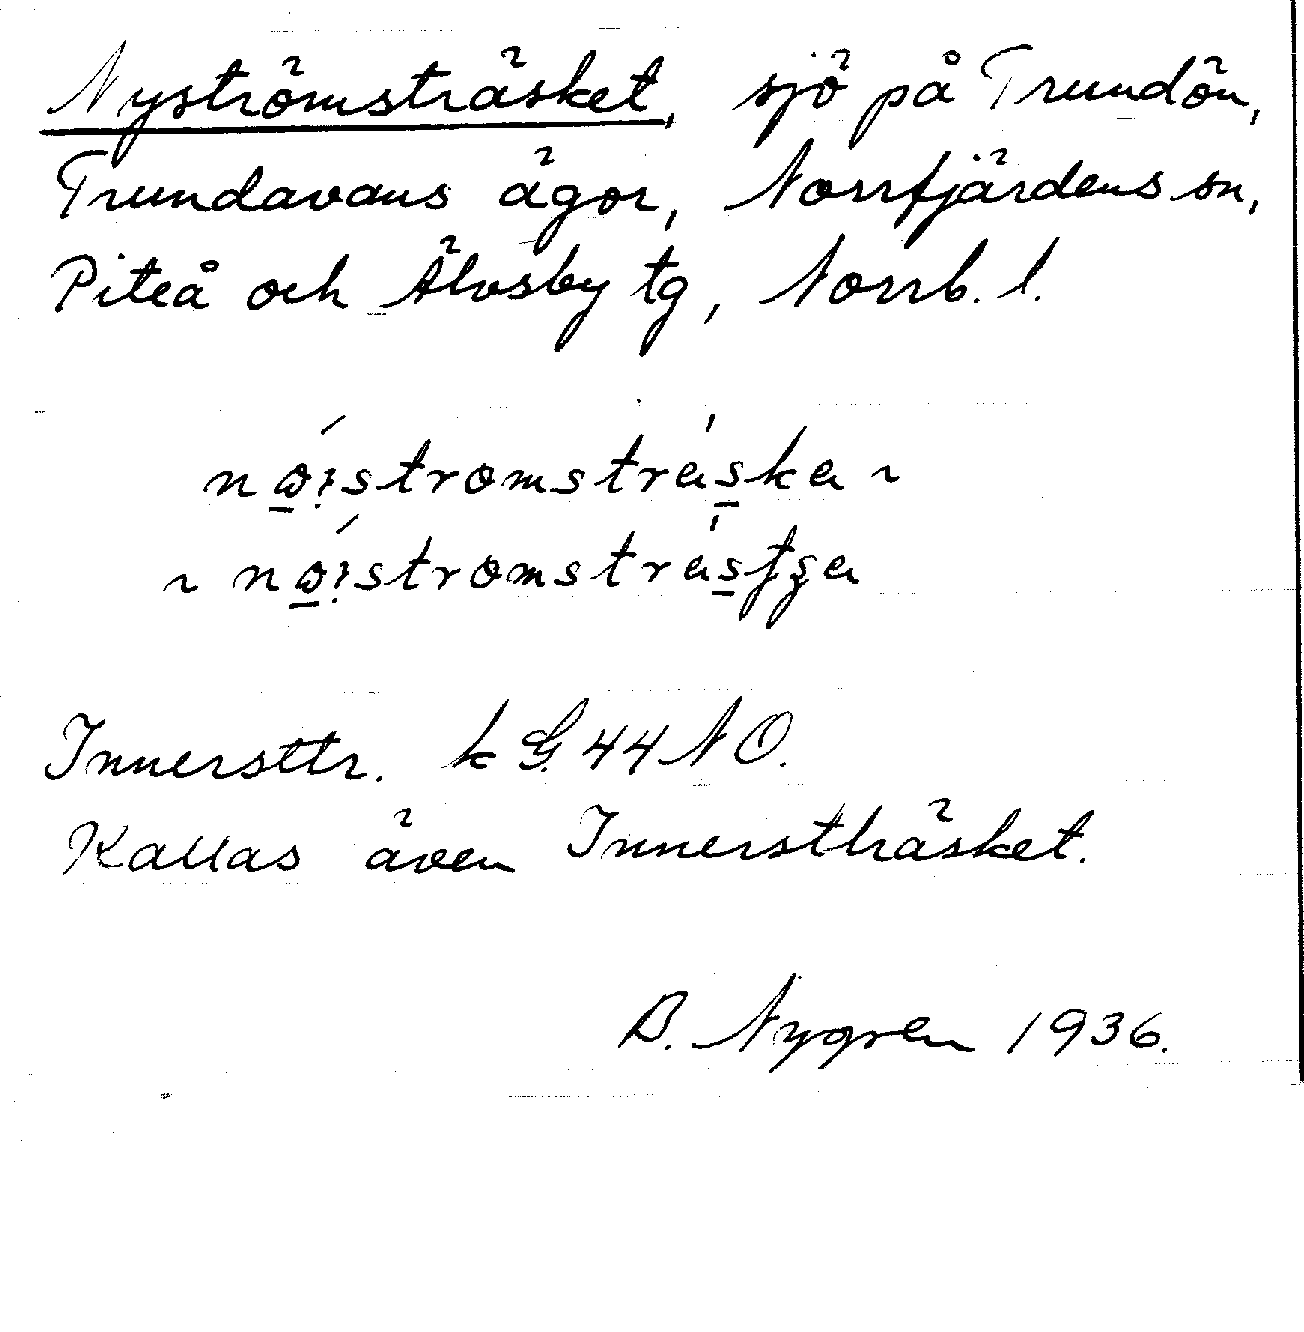 Nyströmsträsket, sjö på Trundön,
Trundavans ägor, Norrfjärdens sn,
Piteå och Älvsby tg, Norrb. l.
Innersttr. k G. 44 N O.
Kallas även Innersträsket.
B. Nygren 1936.